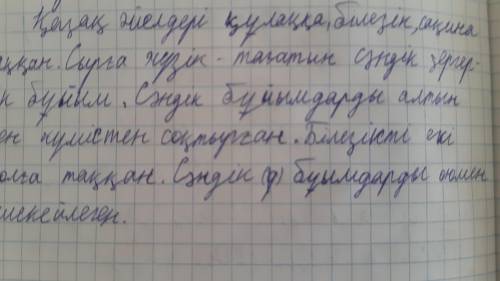 Қазақ әйелдері құлаққа, білезік, сақина
аққан. Сырға жүзік - тағатын сәндік зергер-
к бұйым. Сәндік бұйымдарды алтын
ен күмістен соқтырған. Білезікті екі
олға таққан. Сәндік (ф) бұымдарды оюмен
шекейлеген.